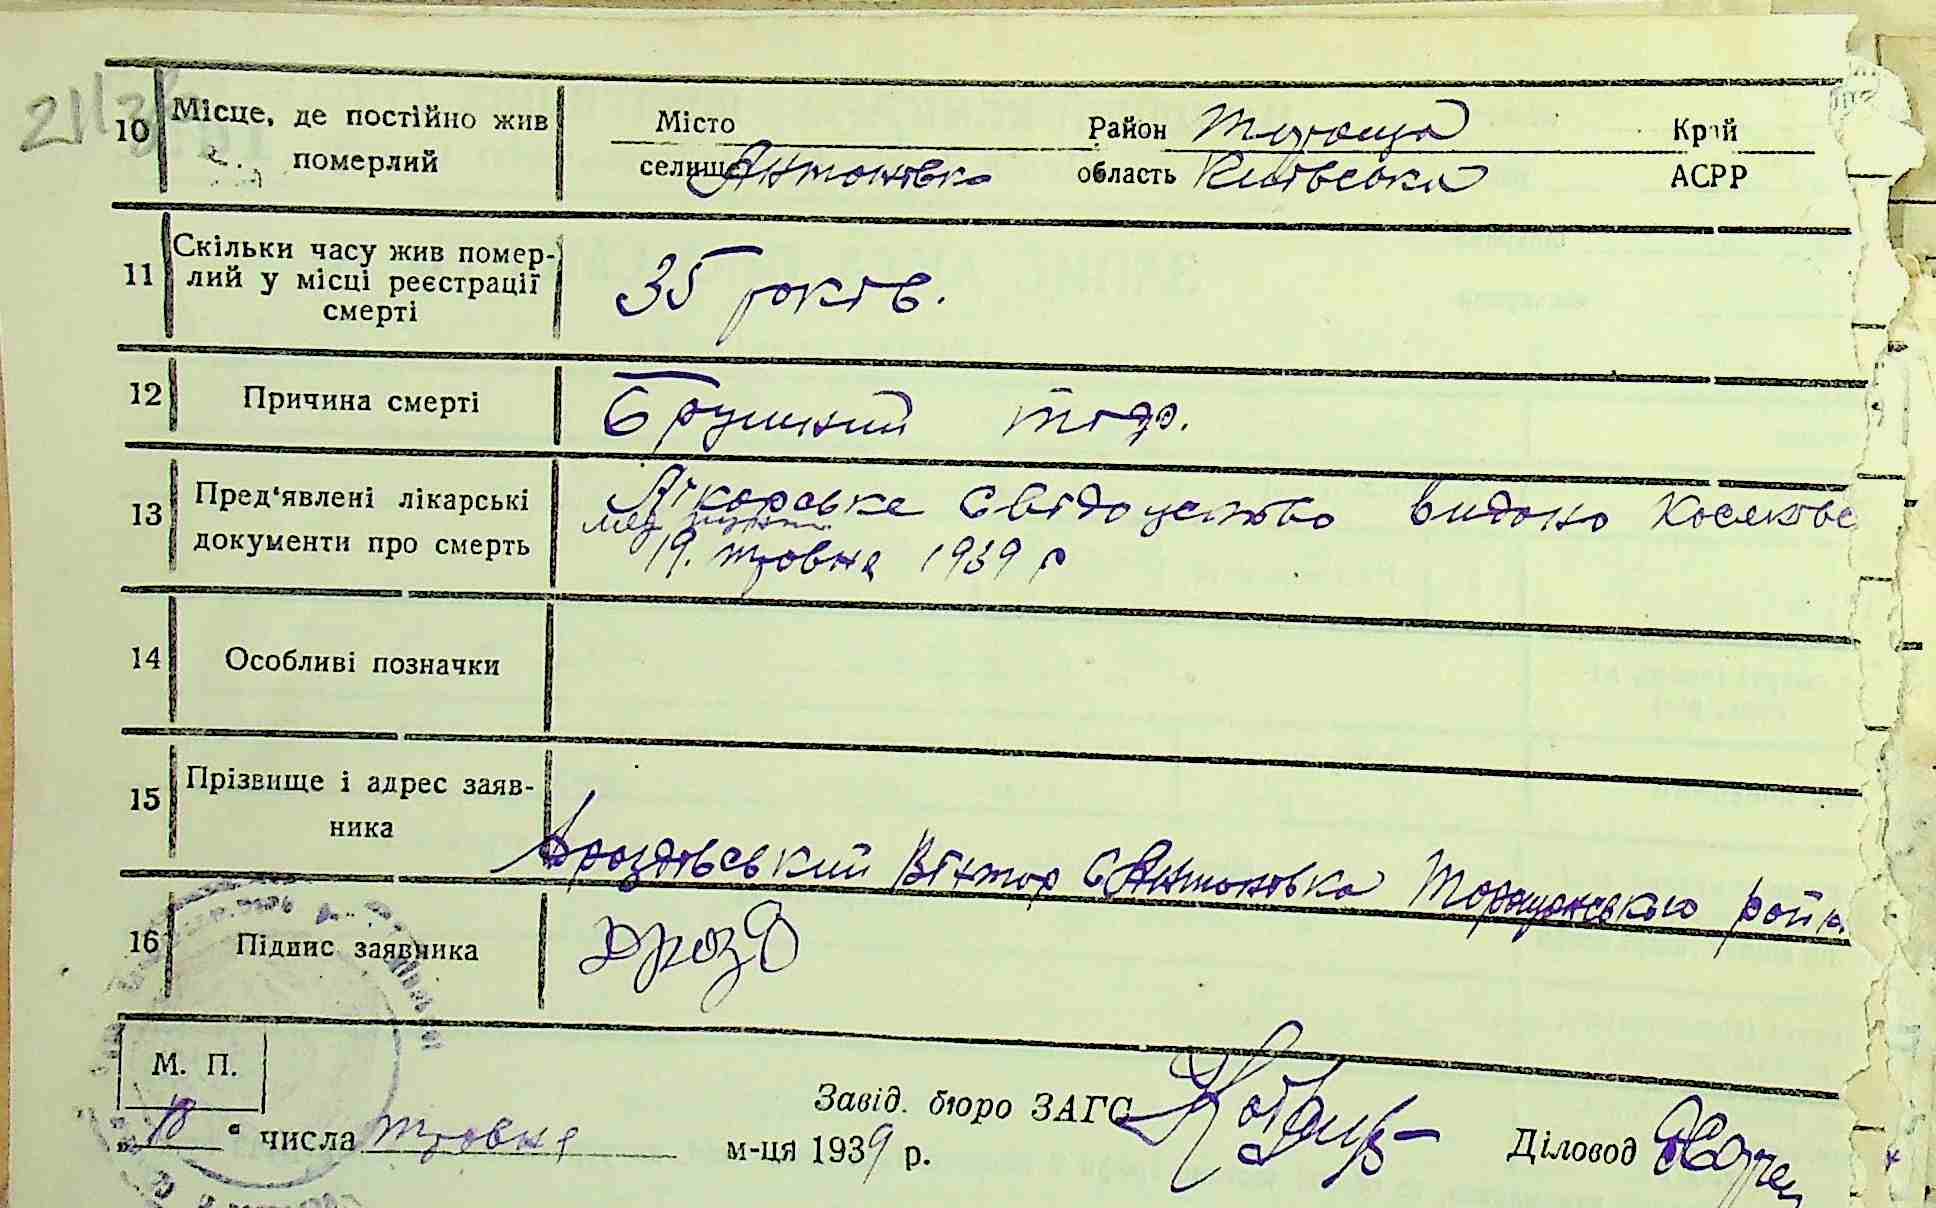 21/3
10 Місце, де постійно жив померлий
Місто Район Тараща Край
селище Антонівка область Київська АСРР
11 Скільки часу жив помер-
лий у місці реєстрації
смерті
35 років.
12 Причина смерті
Брушний тіф.
13 Пред'явлені лікарські
документи про смерть
Лікарське свідоцтво видано Косяківс
мед пункт
19. травня 1939 р
14 Особливі позначки
15 Прізвище і адрес заяв-
ника
Дроздовський Віктор с Антоновка Таращанського район.
16 Підпис заявника
Дрозд
М. П.
Завід. бюро ЗАГС
числа травня м-ця 1939 р.
Діловод